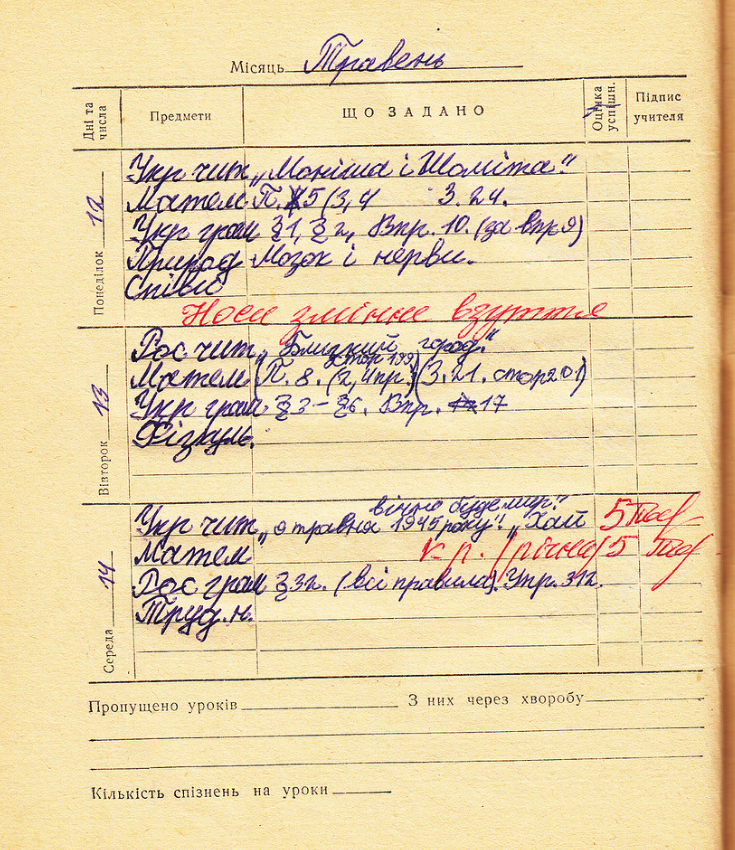 Місяць Травень
Дні та числа Предмети ЩО ЗАДАНО Оцінка успішн. Підпис учителя
Понеділок 12
Укр чит „Моніша і Шоміта."
Матем П. 5 (3, 4 З. 24.
Укр грам §1, §2, Впр. 10. (за впр 9)
Природ Мозок і нерви.
Співи
Носи змінне взуття
Вівторок 13
Рос чит „Близкий город."
стор 199
Матем (П. 8. (2, 4 пр.) (З. 21. стор 201)
Укр грам §3-§6. Впр. 17
Фізкуль.
Середа 14
вічно буде мир."
Укр чит „9 травня 1945 року". „Хай 5
Матем к.р. (річна) 5
Рос грам §32. (всі правила). Упр. 312.
Труд. н.
Пропущено уроків З них через хворобу
Кількість спізнень на уроки